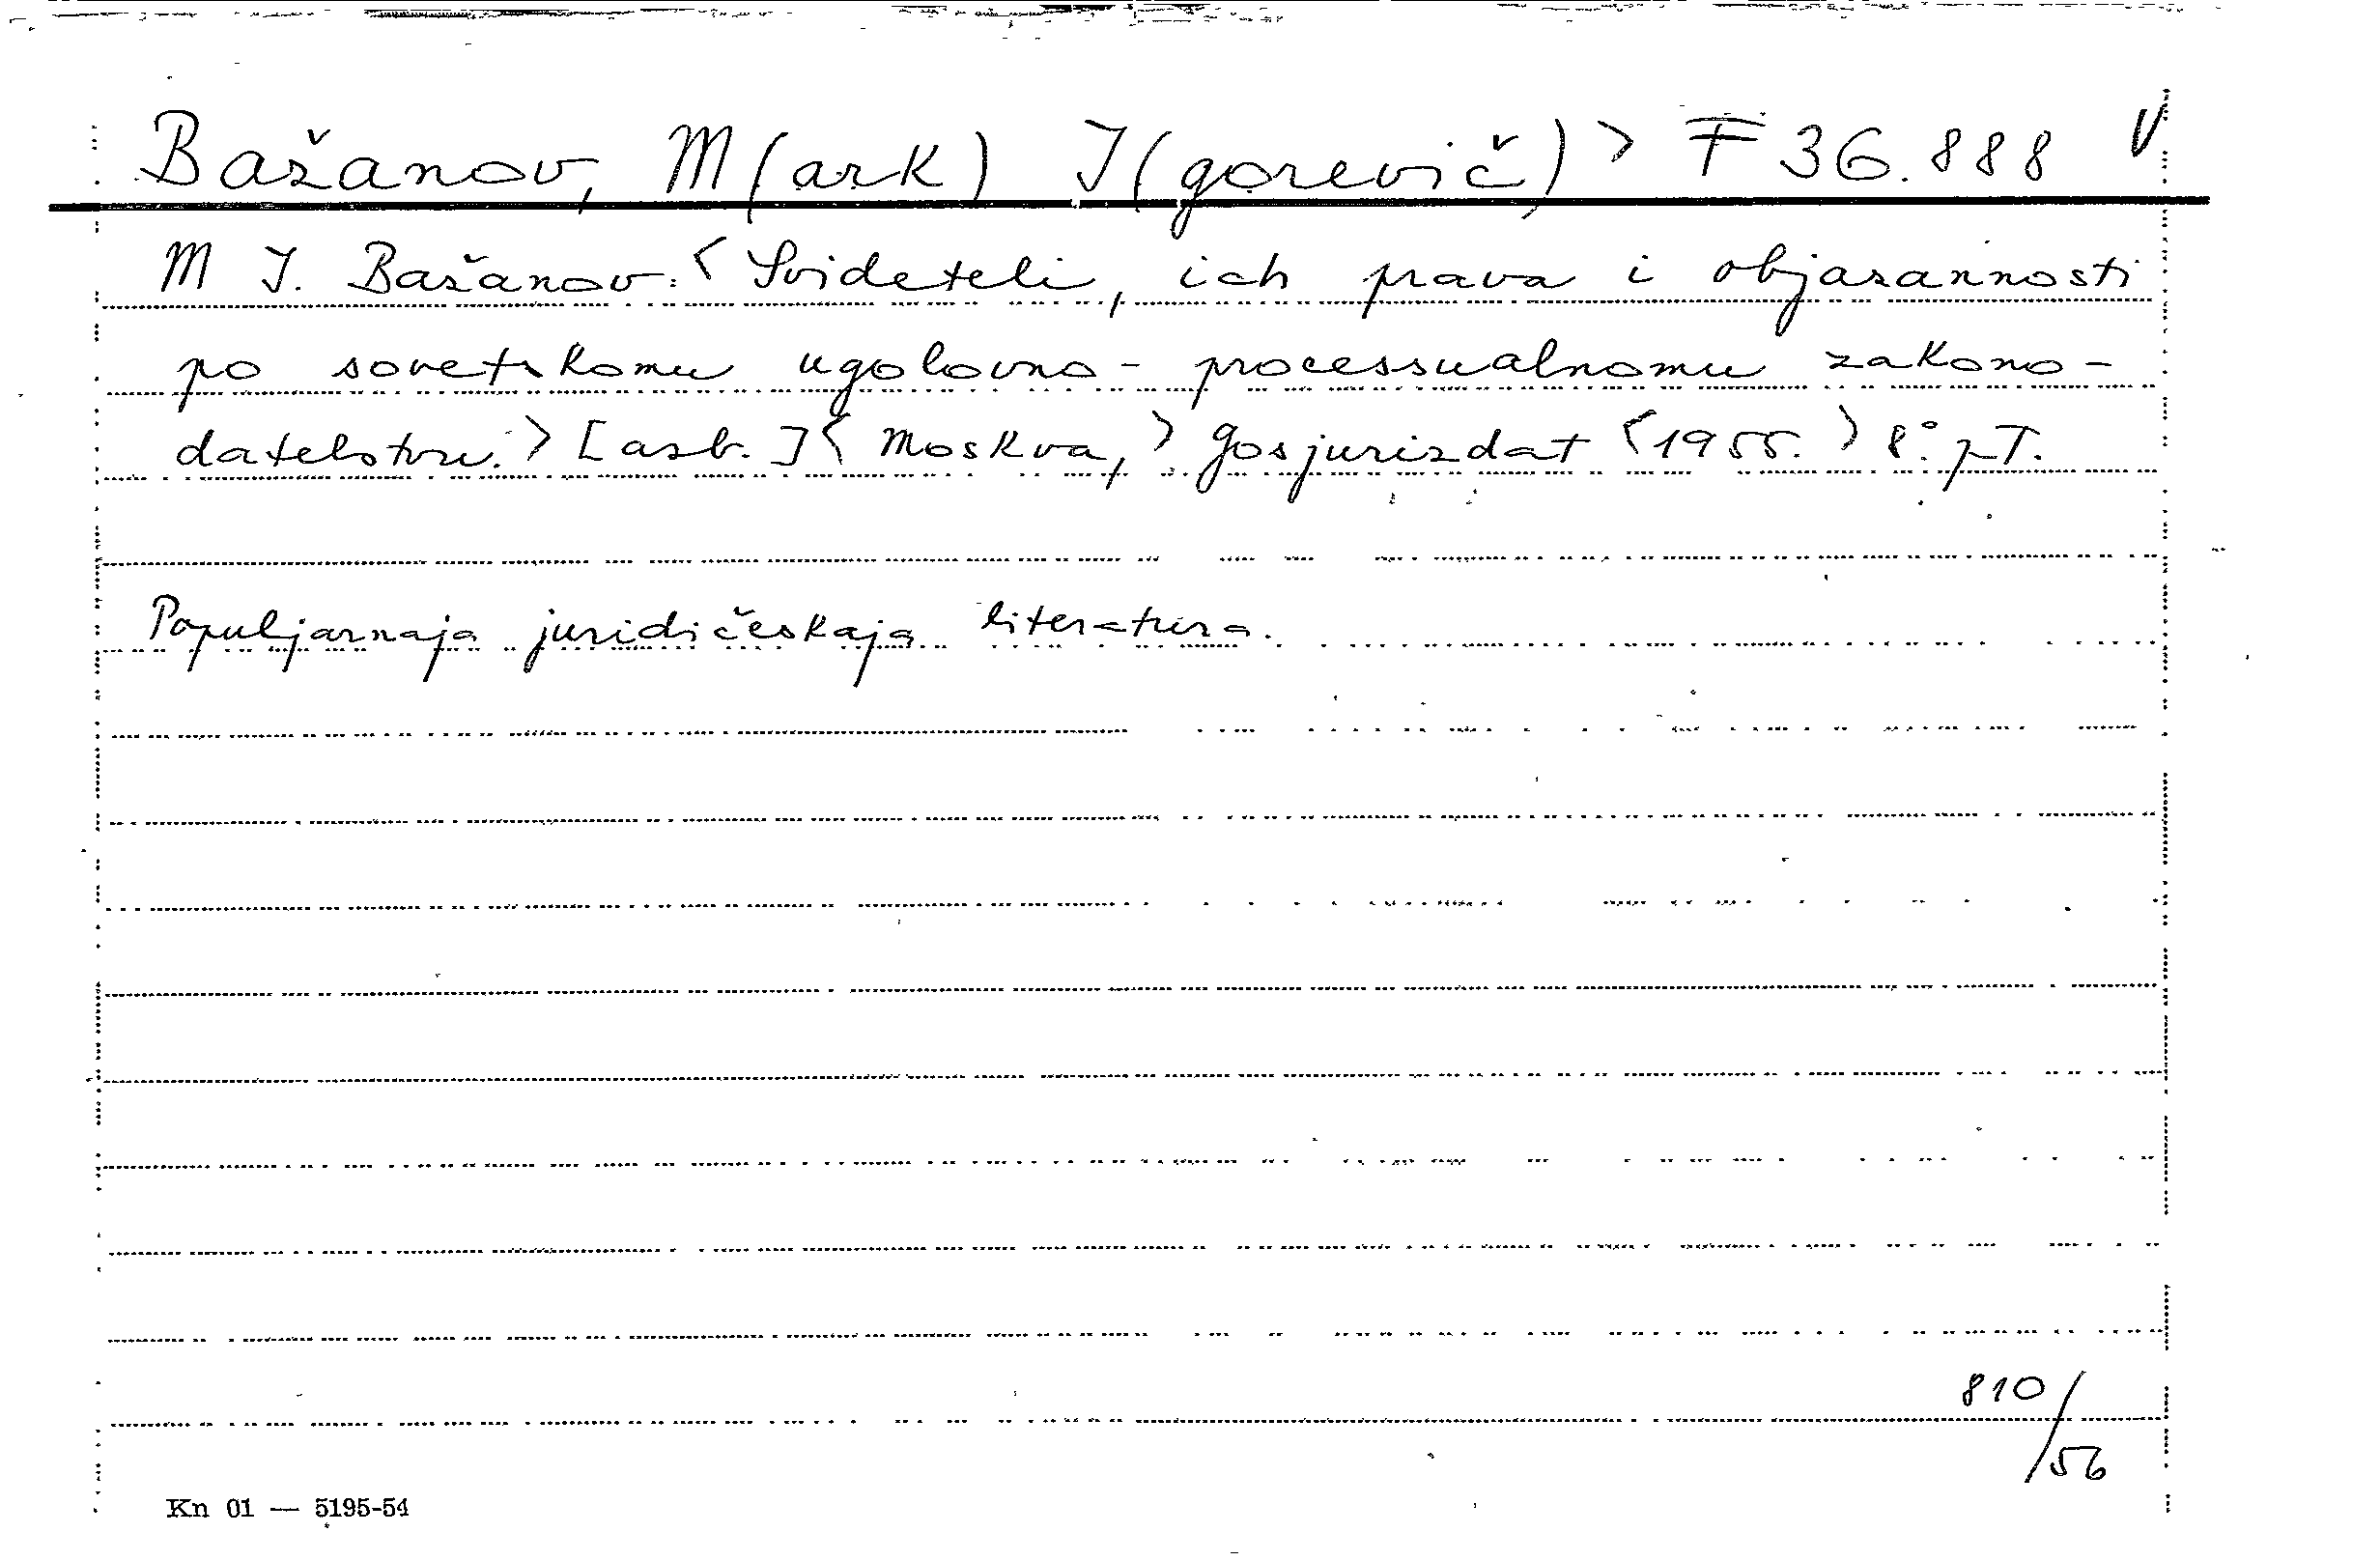 Bažanov, M(ark) J(gorevič) > F 36.888 V
M J. Bažanov: < Svideteli, ich prava i objazannosti
po sovetskomu ugolovno- processualnomu zakono-
datelstvu. > [azb.] < Moskva, > Gosjurizdat < 1955. > 8°. pT.
Populjarnaja juridičeskaja literatura.
810/56
Kn 01 — 5195-54